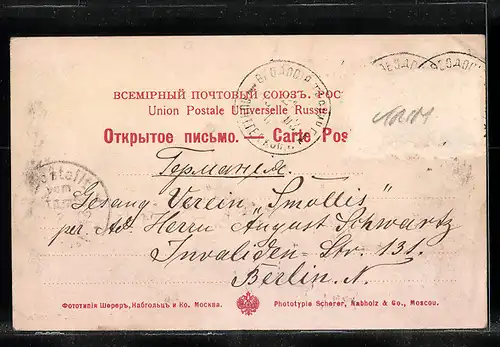 ВСЕМІРНЫЙ ПОЧТОВЫЙ СОЮЗЪ. РОС
Union Postale Universelle Russie.
Открытое письмо. — Carte Pos
Германія.
Gesang-Verein "Smollis"
per Adr Herrn August Schwartz
Invaliden-Str. 131.
Berlin. N.
Фототипія Шереръ, Набгольцъ и Ко. Москва.
Phototypie Scherer, Nabholz & Co., Moscou.